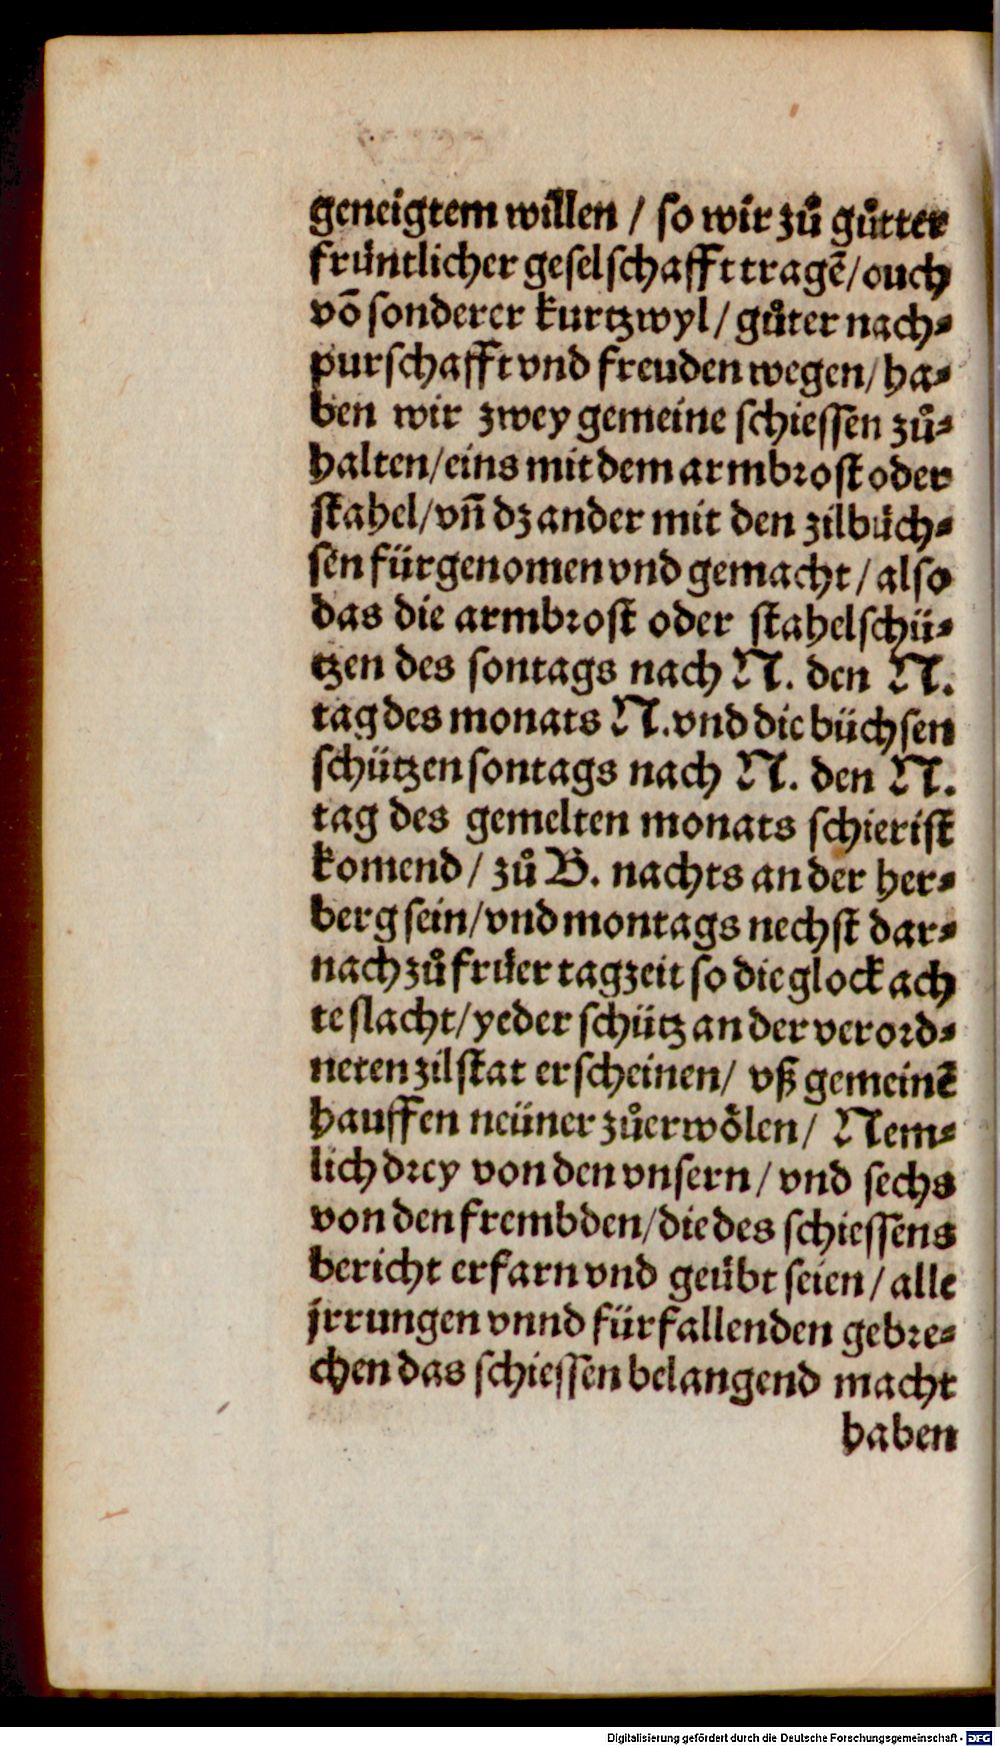 geneigtem willen / so wir zů gůtter
früntlicher geselschafft tragē/ouch
vō sonderer kurtzwyl / gůter nach⸗
purschafft vnd freuden wegen/ ha⸗
ben wir zwey gemeine schiessen zů⸗
halten/eins mit dem armbrost oder
stahel/vñ dz ander mit den zilbüch⸗
sen fürgenomen vnd gemacht / also
das die armbrost oder stahelschü⸗
tzen des sontags nach N. den N.
tag des monats N. vnd die büchsen
schützen sontags nach N. den N.
tag des gemelten monats schierist
komend / zů B. nachts an der her⸗
berg sein/vnd montags nechst dar⸗
nach zů früer tagzeit so die glock ach
te slacht/yeder schütz an der verord⸗
neten zilstat erscheinen/ vß gemeinē
hauffen neüner zůerwölen/ Nem⸗
lich drey von den vnsern / vnd sechs
von den frembden/die des schiessens
bericht erfarn vnd geübt seien / alle
jrrungen vnnd fürfallenden gebre⸗
chen das schiessen belangend macht
haben
Digitalisierung gefördert durch die Deutsche Forschungsgemeinschaft - DFG